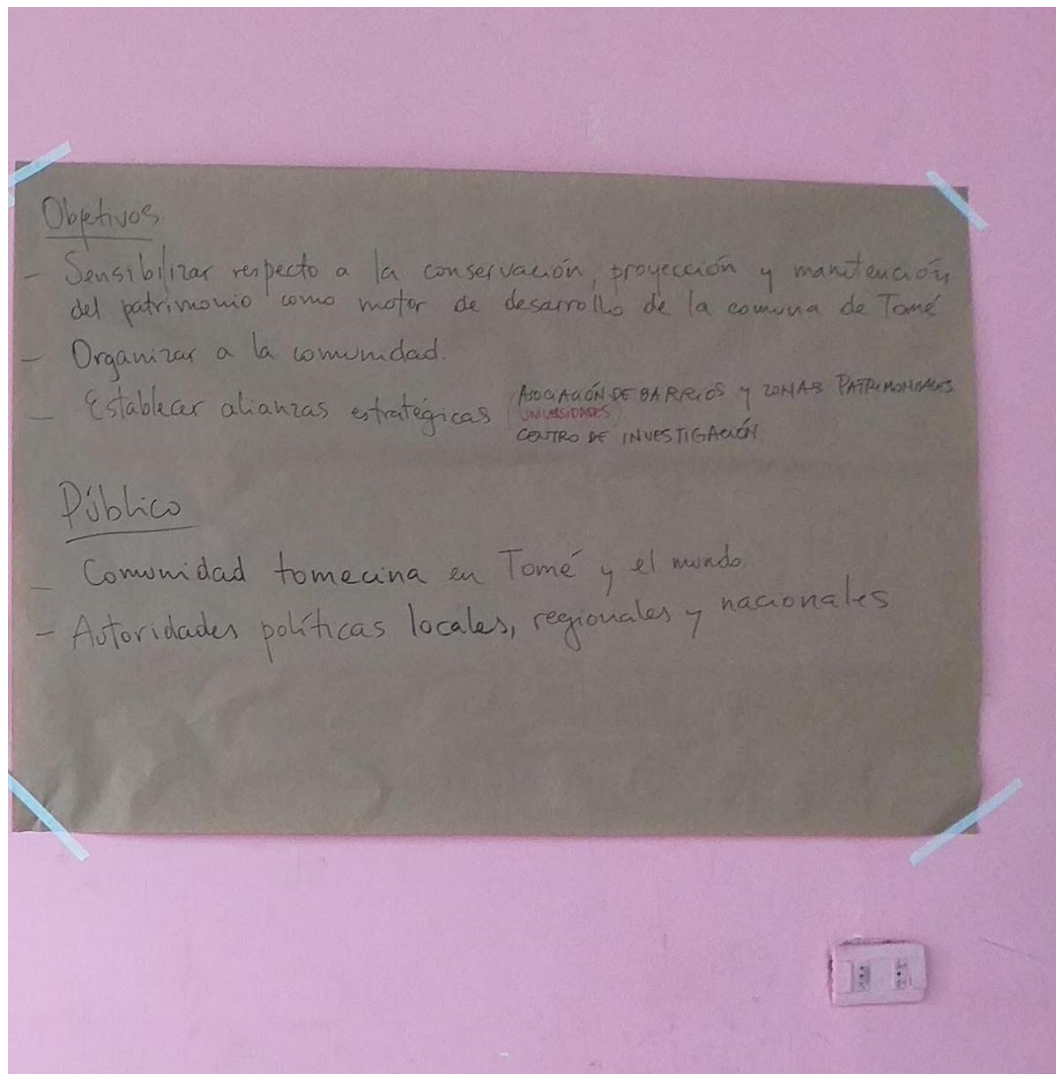 Objetivos.
- Sensibilizar respecto a la conservación, proyección y manitención
del patrimonio como motor de desarrollo de la comuna de Tomé
- Organizar a la comunidad.
- Establecer alianzas estratégicas
ASOCIACIÓN DE BARRIOS y ZONAS PATRIMONIALES
UNIVERSIDADES
CENTRO DE INVESTIGACIÓN.
Público
- Comunidad tomecina en Tomé y el mundo
- Autoridades políticas locales, regionales y nacionales